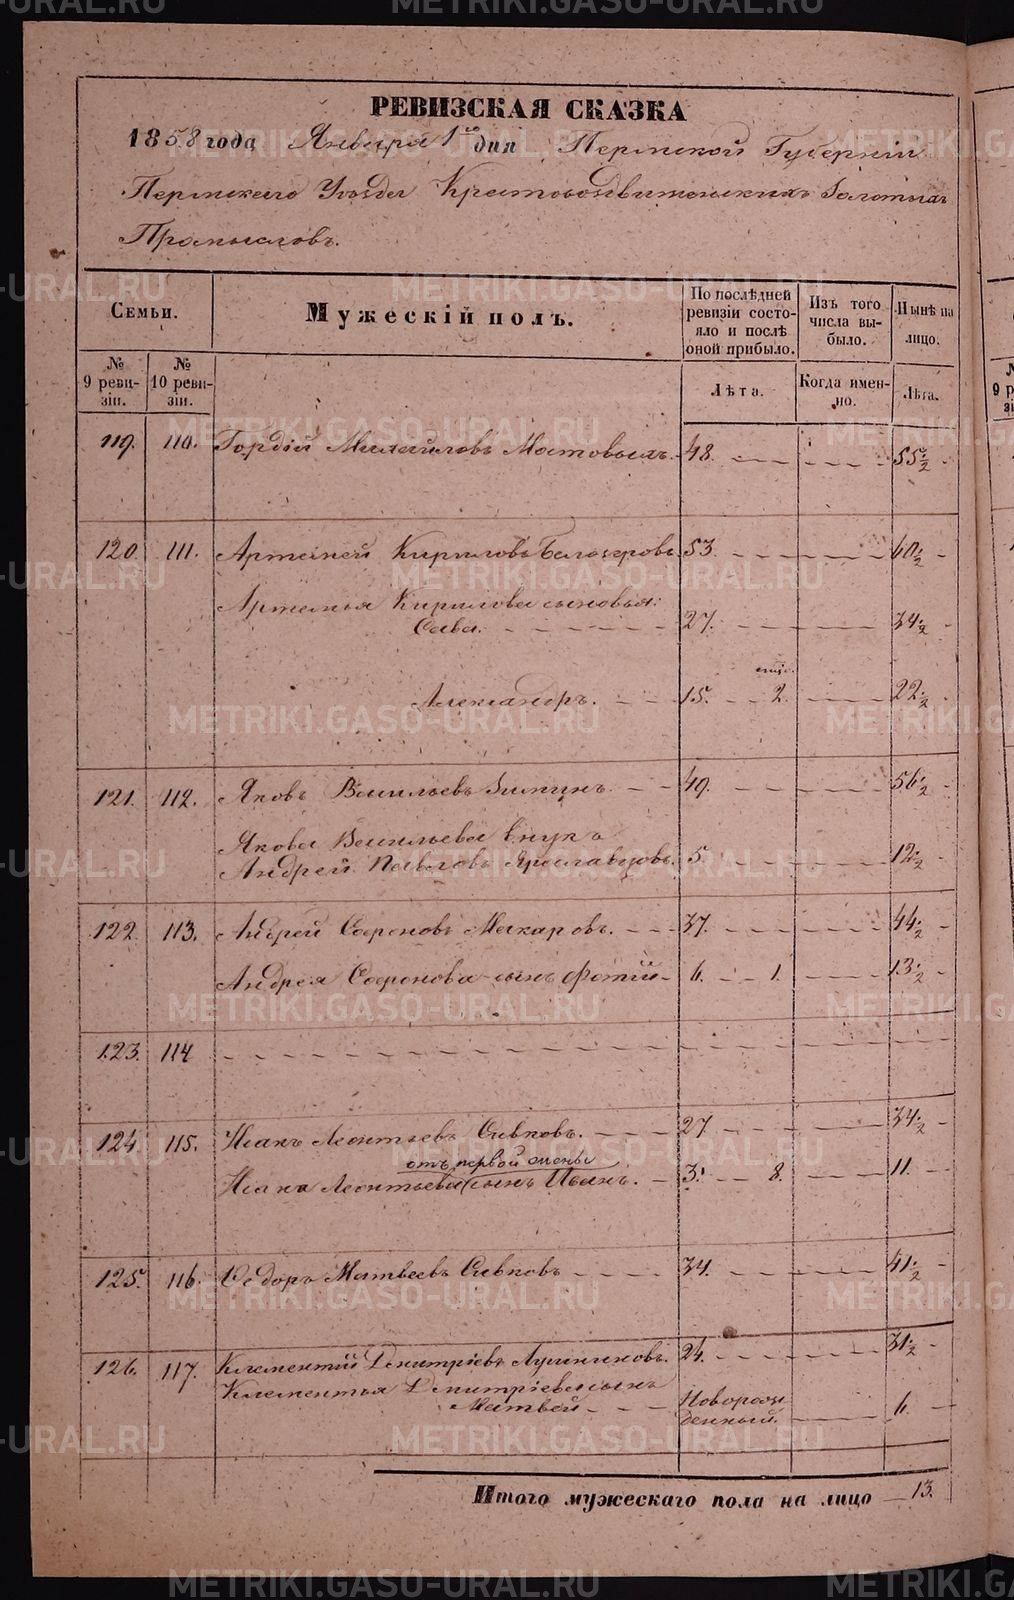 РЕВИЗСКАЯ СКАЗКА
1858 года Января 1го дня Пермской Губерніи
Пермскаго Уѣзда Крестовоздвиженскихъ Золотыхъ
Промысловъ.
Семьи.
Мужескій полъ.
По послѣдней ревизіи состояло и послѣ оной прибыло.
Изъ того числа выбыло.
Нынѣ на лицо.
№ 9 ревизіи.
№ 10 ревизіи.
Лѣта.
Когда именно.
Лѣта.
119. 110. Гордій Михайловъ Мотовыхъ. 48. 55½
120. 111. Артемей Кириловъ Белозеровъ 53. 60½
Артемья Кирилова сыновья:
Сава. 27. 34½
Александръ. 15. 2. 22½
121. 112. Яковъ Васильевъ Зыминъ. 49. 56½
Якова Васильева внукъ
Андрей Павловъ Ярославцовъ. 5. 12½
122. 113. Андрей Софоновъ Макаровъ. 37. 44½
Андрея Софонова сынъ Фотій 6. 1. 13½
123. 114
124. 115. Исакъ Леонтьевъ Сивковъ. 27 34½
отъ первой жены
Исака Леонтьева сынъ Иванъ. 3. 8. 11.
125. 116. Федоръ Матвеевъ Сивковъ 34. 41½
126. 117. Клементій Дмитріевъ Лушниковъ. 24. 31½
Клементья Дмитріева сынъ
Матвей Новорожденный. 6.
Итого мужескаго пола на лицо 13.
METRIKI.GASO-URAL.RU